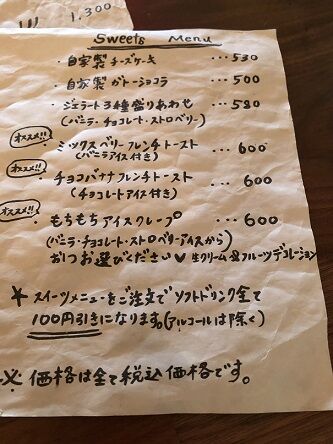 1,300
Sweets Menu
・自家製 チーズケーキ …530
・自家製 ガトーショコラ …500
・ジェラート3種盛りあわせ …580
(バニラ・チョコレート・ストロベリー)
オススメ!!
・ミックスベリーフレンチトースト …600
(バニラアイス付き)
オススメ!!
・チョコバナナフレンチトースト …600
(チョコレートアイス付き)
オススメ!!
・もちもちアイスクレープ …600
(バニラ・チョコレート・ストロベリーアイスから)
おひとつお選びください♥生クリーム&フルーツデコレーション
* スイーツメニューをご注文でソフトドリンク全て
100円引きになります。(アルコールは除く)
※ 価格は全て税込価格です。